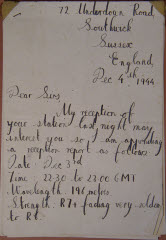 72 Underdown Road
Southwick
Sussex
England,
Dec 4th 1944
Dear Sirs
My reception of
your station last night may
interest you so I am appending
a reception report as follows
Date : Dec 3rd
Time : 22.30 to 23.00 GMT
Wavelength 196 metres
Strength R7+ fading very seldom
to R5.